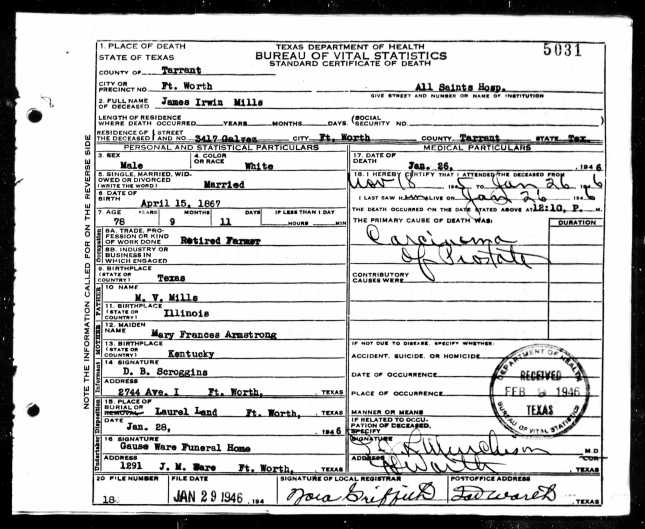 5031
1. PLACE OF DEATH
STATE OF TEXAS
TEXAS DEPARTMENT OF HEALTH
BUREAU OF VITAL STATISTICS
STANDARD CERTIFICATE OF DEATH
COUNTY OF Tarrant
CITY OR PRECINCT NO. Ft. Worth All Saints Hosp.
GIVE STREET AND NUMBER OR NAME OF INSTITUTION
2. FULL NAME OF DECEASED James Irwin Mills
LENGTH OF RESIDENCE WHERE DEATH OCCURRED YEARS MONTHS DAYS (SOCIAL SECURITY NO.
RESIDENCE OF THE DECEASED STREET AND NO. 3417 Galvez CITY Ft. Worth COUNTY Tarrant STATE Tex.
PERSONAL AND STATISTICAL PARTICULARS
3. SEX Male 4. COLOR OR RACE White
5. SINGLE, MARRIED, WIDOWED OR DIVORCED (WRITE THE WORD) Married
6. DATE OF BIRTH April 15, 1867
7. AGE YEARS MONTHS DAYS IF LESS THAN 1 DAY
78 9 11 HOURS MIN
8A. TRADE, PROFESSION OR KIND OF WORK DONE Retired Farmer
8B. INDUSTRY OR BUSINESS IN WHICH ENGAGED
9. BIRTHPLACE (STATE OR COUNTRY) Texas
10 NAME M. V. Mills
11. BIRTHPLACE (STATE OR COUNTRY) Illinois
12. MAIDEN NAME Mary Frances Armstrong
13. BIRTHPLACE (STATE OR COUNTRY) Kentucky
14 SIGNATURE D. B. Scroggins
ADDRESS 2744 Ave. I Ft. Worth, TEXAS
15. PLACE OF BURIAL OR REMOVAL Laurel Land Ft. Worth, TEXAS
DATE Jan. 28, 1946
16 SIGNATURE Gause Ware Funeral Home
ADDRESS 1291 J. M. Ware Ft. Worth, TEXAS
MEDICAL PARTICULARS
17. DATE OF DEATH Jan. 26, 1946
18. I HEREBY CERTIFY THAT I ATTENDED THE DECEASED FROM
Nov 18 194 TO Jan 26 1946
I LAST SAW HIM ALIVE ON Jan 26 194
THE DEATH OCCURRED ON THE DATE STATED ABOVE AT 12:10, P. M.
THE PRIMARY CAUSE OF DEATH WAS: DURATION
Carcinoma
of Prostate
CONTRIBUTORY CAUSES WERE:
IF NOT DUE TO DISEASE, SPECIFY WHETHER:
ACCIDENT, SUICIDE, OR HOMICIDE
DATE OF OCCURRENCE
PLACE OF OCCURRENCE
MANNER OR MEANS
IF RELATED TO OCCUPATION OF DECEASED, SPECIFY
SIGNATURE M.D.
ADDRESS Ft Worth TEXAS
DEPARTMENT OF HEALTH
RECEIVED
FEB 1946
TEXAS
BUREAU OF VITAL STATISTICS
20 FILE NUMBER FILE DATE SIGNATURE OF LOCAL REGISTRAR POSTOFFICE ADDRESS
18 JAN 29 1946 194 Nora Griffith Fort Worth
NOTE THE INFORMATION CALLED FOR ON THE REVERSE SIDE
Occupation
FATHER
MOTHER
Informant
Disposition
Undertaker